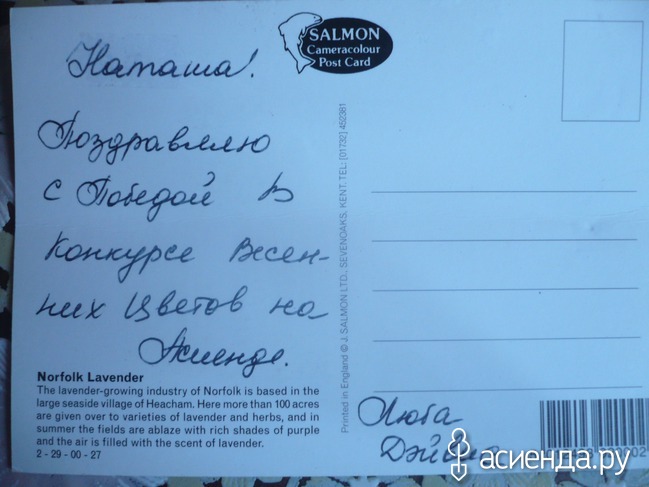 SALMON
Cameracolour
Post Card
Наташа!
Поздравляю
с Победой в
Конкурсе Весен-
них Цветов на
Асиенде.
Norfolk Lavender
The lavender-growing industry of Norfolk is based in the
large seaside village of Heacham. Here more than 100 acres
are given over to varieties of lavender and herbs, and in
summer the fields are ablaze with rich shades of purple
and the air is filled with the scent of lavender.
2 - 29 - 00 - 27
Printed in England © J. SALMON LTD., SEVENOAKS, KENT. TEL: [01732] 452381
Люба
асиенда.ру